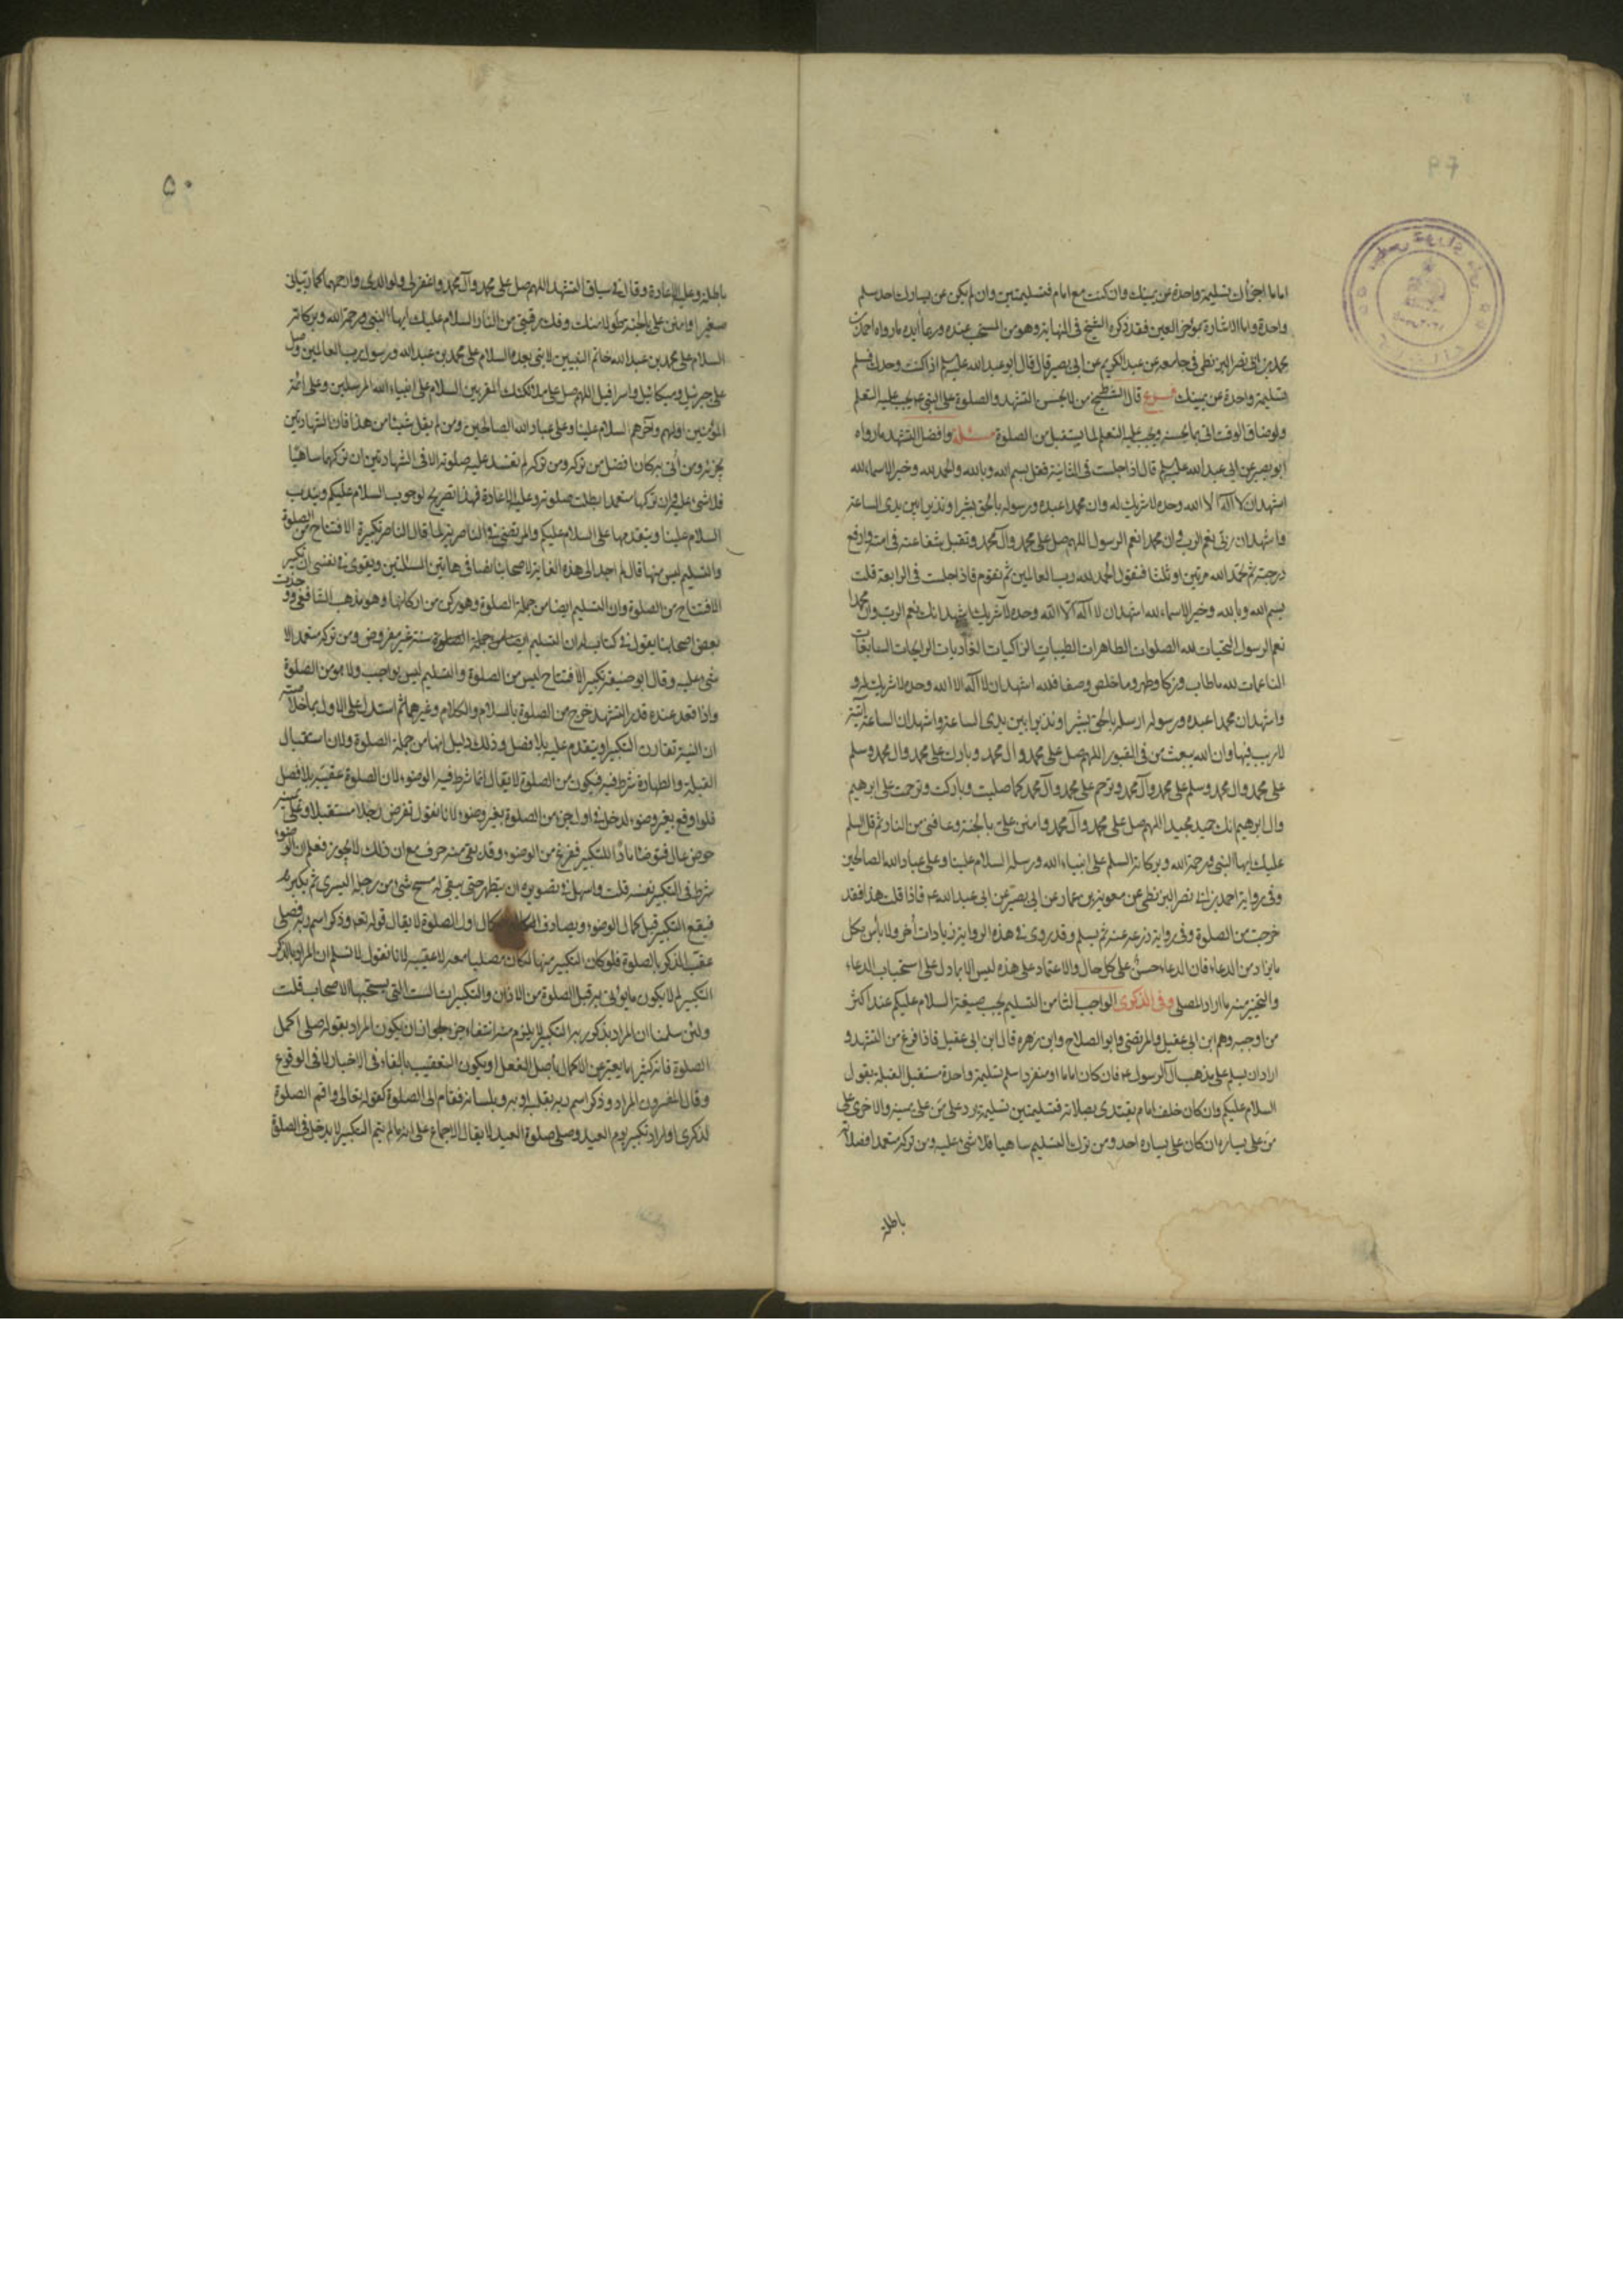 اماما اجزأك تسليمة واحدة عن يمينك وان كنت مع امام فتسليمتين وان لم يكن عن يسارك احد سلم
واحدة واما الاشارة بمؤخر العين فقد ذكره الشيخ فى النهاية وهو من المستحب عنده وربما أيده ما رواه احمد بن
محمد بن ابى نصر البزنطى فى جامعه عن عبد الكريم عن ابى بصير قال قال ابو عبد الله عليه السلم اذا كنت وحدك فسلم
تسليمة واحدة عن يمينك فروع قال الشيخ من لا يحسن التشهد والصلوة على النبى ع يجب عليه التعلم
ولو ضاق الوقت اتى بما يحسنه ويجب عليه التعلم لما يستقبل من الصلوة مسئلة وافضل التشهد ما رواه
ابو بصير عن ابى عبد الله عليه السلم قال اذا جلست فى الثانية فقل بسم الله وبالله والحمد لله وخير الاسماء لله
اشهد ان لا اله الا الله وحده لا شريك له وان محمدا عبده ورسوله بالحق بشيرا ونذيرا بين يدى الساعة
واشهد ان ربى نعم الرب وان محمدا نعم الرسول اللهم صل على محمد وآل محمد وتقبل شفاعته فى امته وارفع
درجته ثم تحمد الله مرتين او ثلثا فتقول الحمد لله رب العالمين ثم تقوم فاذا جلست فى الرابعة قلت
بسم الله وبالله وخير الاسماء لله اشهد ان لا اله الا الله وحده لا شريك اشهد انك نعم الرب وان محمدا
نعم الرسول التحيات لله الصلوات الطاهرات الطيبات الزاكيات الغاديات الرايحات السابغات
الناعمات لله ما طاب وزكا وطهر وما خلص وصفا فلله اشهد ان لا اله الا الله وحده لا شريك له و
واشهد ان محمدا عبده ورسوله ارسله بالحق بشيرا ونذيرا بين يدى الساعة واشهد ان الساعة آتية
لا ريب فيها وان الله يبعث من فى القبور اللهم صل على محمد وال محمد وبارك على محمد وال محمد وسلم
على محمد وال محمد وسلم على محمد وآل محمد وترحم على محمد وآل محمد كما صليت وباركت وترحمت على ابرهيم
وال ابرهيم انك حميد مجيد اللهم صل على محمد وآل محمد وامنن على بالجنة وعافنى من النار ثم قل السلم
عليك ايها النبى ورحمة الله وبركاته السلم على انبياء الله ورسله السلام علينا وعلى عباد الله الصالحين
وفى رواية احمد بن ابى نصر البزنطى عن معوية بن عمار عن ابى بصير عن ابى عبد الله ع فاذا قلت هذا فقد
خرجت من الصلوة وفى رواية ذرعه عنه ثم يسلم وقد روى فى هذه الرواية زيادات أخر ولا بأس بكل
ما يزاد من الدعاء فان الدعاء حسن على كل حال والاعتماد على هذه ليس الا بما دل على استحباب الدعاء
والتخيير منه ما اراد المصلى وفى الذكرى الواجب الثامن التسليم يجب صيغة السلام عليكم عند اكثر
من اوجبه وهم ابن ابى عقيل والمرتضى وابو الصلاح وابن زهره قال ابن ابى عقيل فاذا فرغ من التشهد و
اراد ان يسلم على مذهب آل الرسول ع فان كان اماما او منفردا سلم تسليمة واحدة مستقبل القبلة يقول
السلام عليكم وان كان خلف امام يقتدى بصلاته فتسليمتين تسليمة يرد على من على يمينه والاخرى على
من على يساره ان كان على يساره احد ومن ترك التسليم ساهيا فلا شىء عليه ومن تركه متعمدا فصلاته
باطلة
٥٠
باطلة وعليه الاعادة وقال فى سياق التشهد اللهم صل على محمد وآل محمد واغفر لى ولوالدى وارحمهما كما ربيانى
صغيرا وامنن على بالجنة طولا منك وفك رقبتى من النار السلام عليك ايها النبى ورحمة الله وبركاته
السلام على محمد بن عبد الله خاتم النبيين لا نبى بعده السلام على محمد بن عبد الله ورسول رب العالمين وصل
على جبرئيل وميكائيل واسرافيل اللهم صل على ملائكتك المقربين السلام على انبياء الله المرسلين وعلى ائمة
المؤمنين اولهم وآخرهم السلام علينا وعلى عباد الله الصالحين ومن لم يقل شيئا من هذا فان الشهادتين
يجزئه ومن أتى به كان افضل من تركه ومن تركه لم تفسد عليه صلوته الا فى الشهادتين ان تركهما ساهيا
فلا شىء عليه وان تركها متعمدا بطلت صلوته وعليه الاعادة فهذا تصريح لوجوب السلام عليكم ويندب
السلام علينا ويتقدمها على السلام عليكم والمرتضى فى الناصرية لما قال الناصر تكبيرة الافتتاح من الصلوة
والتسليم ليس منها قال لم اجد الى هذه الغاية لاصحابنا نصا فى هاتين المسئلتين ويقوى فى نفسى ان تكبير
الافتتاح من الصلوة وان التسليم ايضا من جملة الصلوة وهو ركن من اركانها وهو مذهب الشافعى ووجدت
بعض اصحابنا يقول فى كتاب له ان التسليم ايضا من جملة الصلوة سنة غير مفروض ومن تركه متعمدا لا
شىء عليه وقال ابو حنيفه تكبير الافتتاح ليس من الصلوة والتسليم ليس بواجب ولا هو من الصلوة
واذا قعد عنده قدر التشهد خرج من الصلوة بالسلام والكلام وغيرهما ثم استدل على الاول بما خلاصته
ان النية تقارن التكبير او يتقدم عليه بلا فصل وذلك دليل انها من جملة الصلوة ولان استقبال
القبلة والطهارة شرط فيه فيكون من الصلوة لا يقال انما شرط فيه الوضوء لان الصلوة عقيبه بلا فصل
فلو اوقع بغير وضوء لدخل فى اول جزء من الصلوة بغير وضوء لانا نقول نفرض رجلا مستقبلا وعلى يمينه
حوض عال فتوضأ مادا للتكبير ففرغ من الوضوء وقد بقى منه حرف مع ان ذلك لا يجوز فعلم ان الوضوء
شرط فى التكبير نفسه قلت واسهل فى تصويره ان يتطهر حتى يبقى له مسح شىء من رجله اليسرى ثم يكبر
فيقع التكبير قبل كمال الوضوء ويصادف اول الصلوة لا يقال قوله تعه وذكر اسم ربه فصلى
عقب الذكر بالصلوة فلو كان التكبير منها لكان مصليا معه لا عقيبه لانا نقول لا نسلم ان المراد بالذكر
التكبير لم لا يكون ما يؤتى به قبل الصلوة من الاذان والتكبيرات الست التى يستحبها الاصحاب قلت
ولئن سلمنا ان المراد بذكر ربه التكبير لا يلزم منه انتفاء جزء لجواز ان يكون المراد بقوله صلى اكمل
الصلوة فانه كثيرا ما يعبر عن الاكمال بأصل الفعل او يكون التعقيب بالفاء فى الاخبار لا فى الوقوع
وقال المفسرون المراد وذكر اسم ربه بقلبه او به وبلسانه فقام الى الصلوة كقوله تعالى واقم الصلوة
لذكرى او اراد تكبير يوم العيد وصلى صلوة العيد لا يقال الاجماع على انه ما لم يتم التكبير لا يدخل فى الصلوة